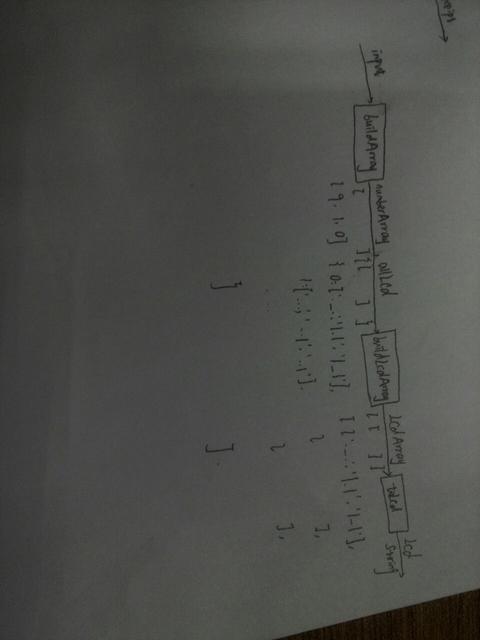 input buildArray numberArray, allLcd buildLcdArray LcdArray toLcd Lcd
String
[ ] { [ ] } [ [ ] ]
[9, 1, 0] { 0:['._.','|.|','|_|'], [ ['._.','|.|','|_|'],
1:['...','..|','..|'], [ ],
... [ ],
} ].